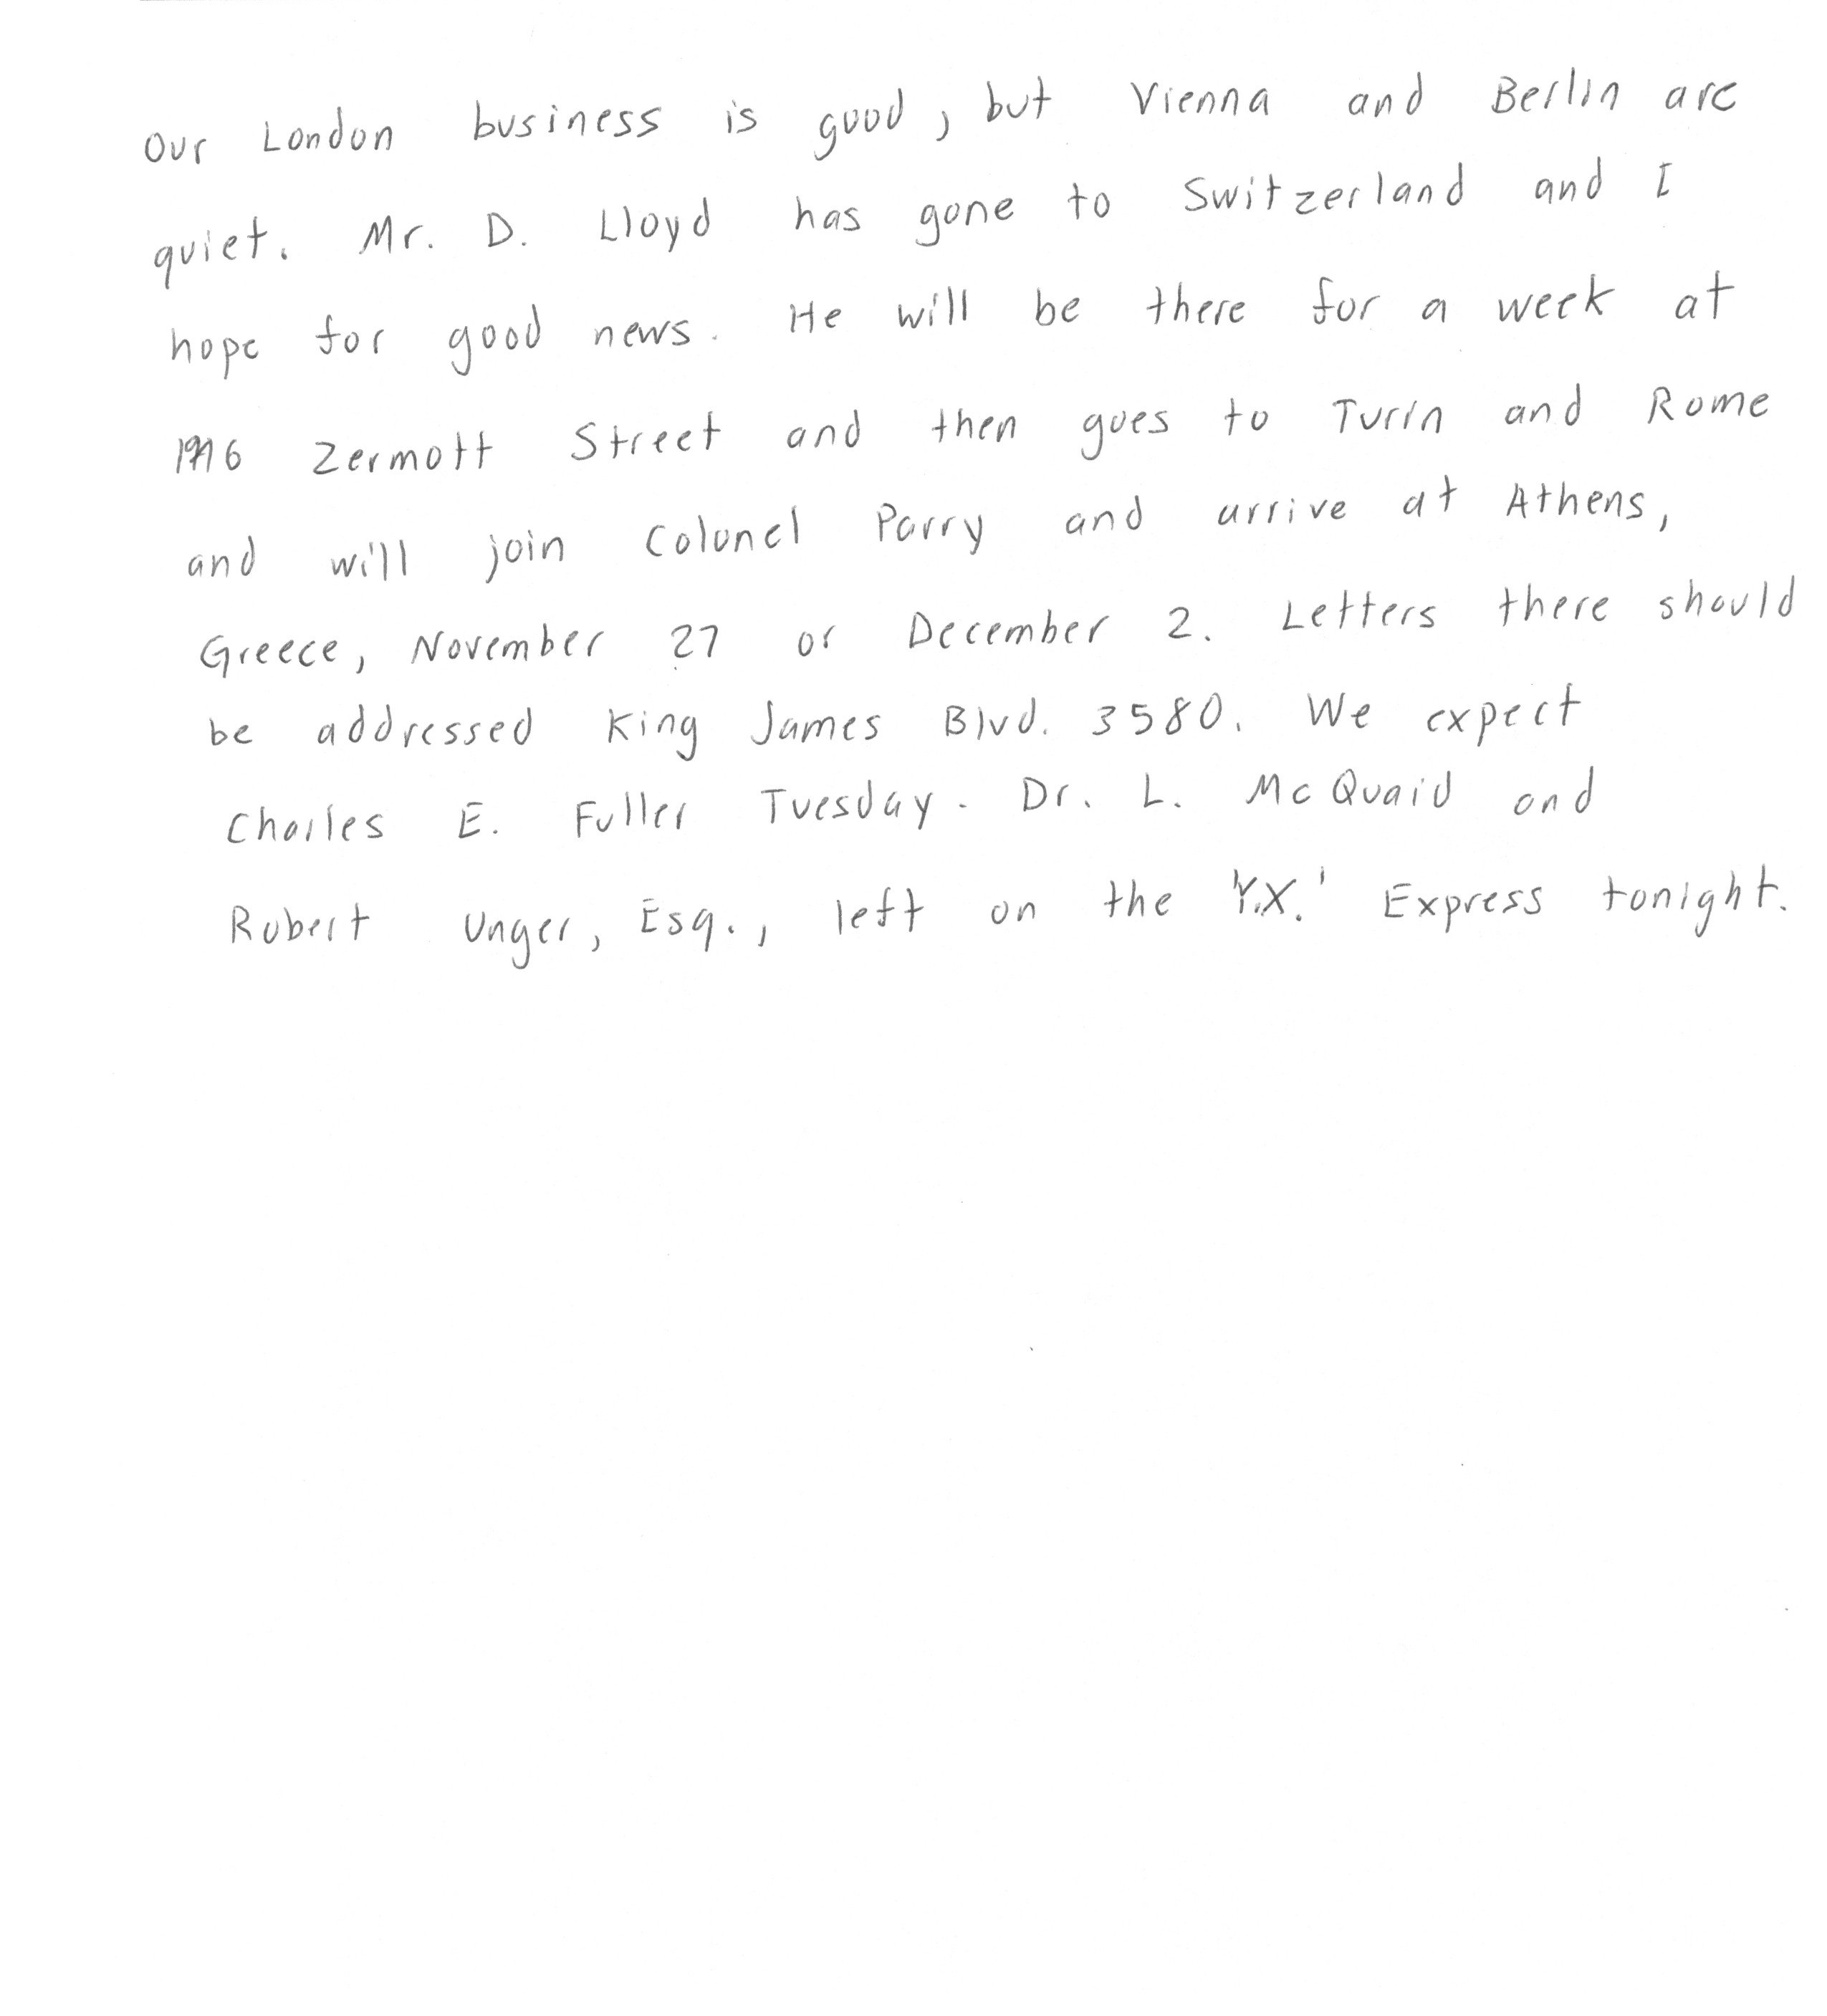 Our London business is good, but Vienna and Berlin are
quiet. Mr. D. Lloyd has gone to Switzerland and I
hope for good news. He will be there for a week at
Zermott Street and then goes to Turin and Rome
and will join Colonel Parry and arrive at Athens,
Greece, November 27 or December 2. Letters there should
be addressed King James Blvd. 3580. We expect
Charles E. Fuller Tuesday. Dr. L. McQuaid and
Robert Unger, Esq., left on the 'Y.X.' Express tonight.